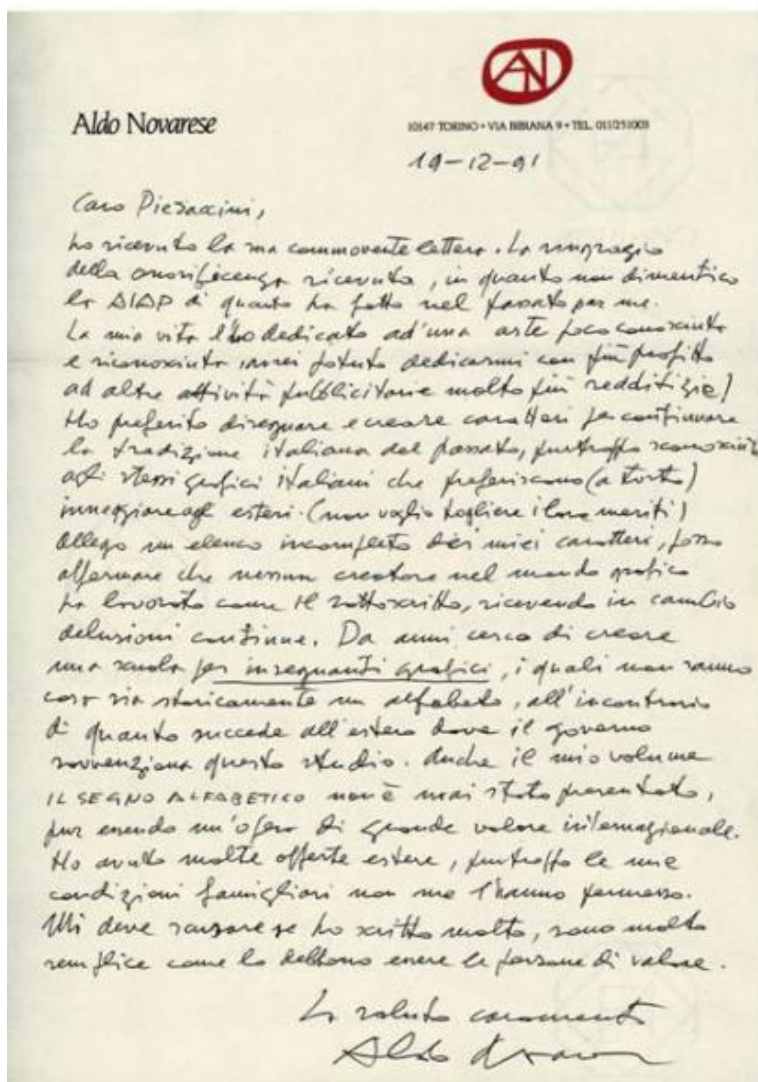 AN
Aldo Novarese
10147 TORINO • VIA BIBIANA 9 • TEL. 011/251003
19-12-91
Caro Pieraccini,
ho ricevuto la sua commovente lettera. La ringrazio
della onorificenza ricevuta, in quanto non dimentico
la AIAP di quanto ha fatto nel passato per me.
La mia vita l'ho dedicato ad'una arte poco conosciuta
e riconosciuta, avrei potuto dedicarmi con più profitto
ad altre attività pubblicitarie molto più redditizie!
Ho preferito disegnare e creare caratteri per continuare
la tradizione italiana del passato, purtroppo sconosciuta
agli stessi grafici italiani che preferiscono (a torto)
inneggiare agli esteri. (non voglio togliere i loro meriti)
Allego un elenco incompleto dei miei caratteri, posso
affermare che nessun creatore nel mondo grafico
ha lavorato come il sottoscritto, ricevendo in cambio
delusioni continue. Da anni cerco di creare
una scuola per insegnanti grafici, i quali non sanno
cosa sia storicamente un alfabeto, all'incontrario
di quanto succede all'estero dove il governo
sovvenziona questo studio. Anche il mio volume
IL SEGNO ALFABETICO non è mai stato presentato,
pur essendo un'opera di grande valore internazionale.
Ho avuto molte offerte estere, purtroppo le mie
condizioni famigliari non me l'hanno permesso.
Mi deve scusare se ho scritto molto, sono molto
semplice come lo debbono essere le persone di valore.
La saluto caramente
Aldo Novarese